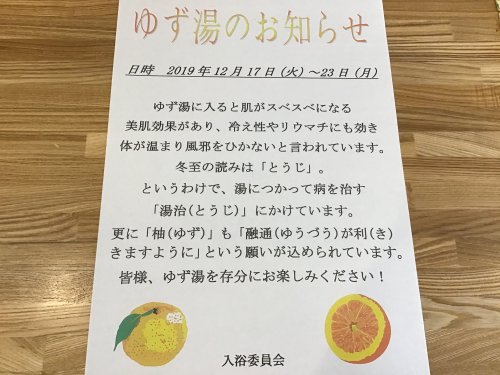 ゆず湯のお知らせ
日時 2019年12月17日(火)~23日(月)
ゆず湯に入ると肌がスベスベになる
美肌効果があり、冷え性やリウマチにも効き
体が温まり風邪をひかないと言われています。
冬至の読みは「とうじ」。
というわけで、湯につかって病を治す
「湯治(とうじ)」にかけています。
更に「柚(ゆず)」も「融通(ゆうづう)が利(き)
きますように」という願いが込められています。
皆様、ゆず湯を存分にお楽しみください!
入浴委員会